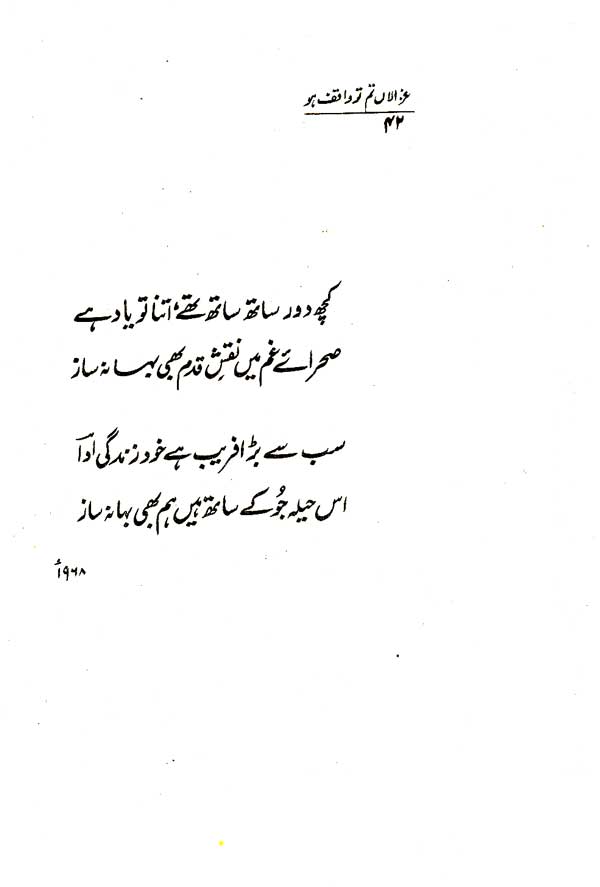 غزالاں تم تو واقف ہو
۴۲
کچھ دور ساتھ ساتھ تھے، اتنا تو یاد ہے
صحرائے غم میں نقشِ قدم بھی بہانہ ساز
سب سے بڑا فریب ہے خود زندگی اداؔ
اس حیلہ جُو کے ساتھ ہیں ہم بھی بہانہ ساز
۱۹۶۸ء